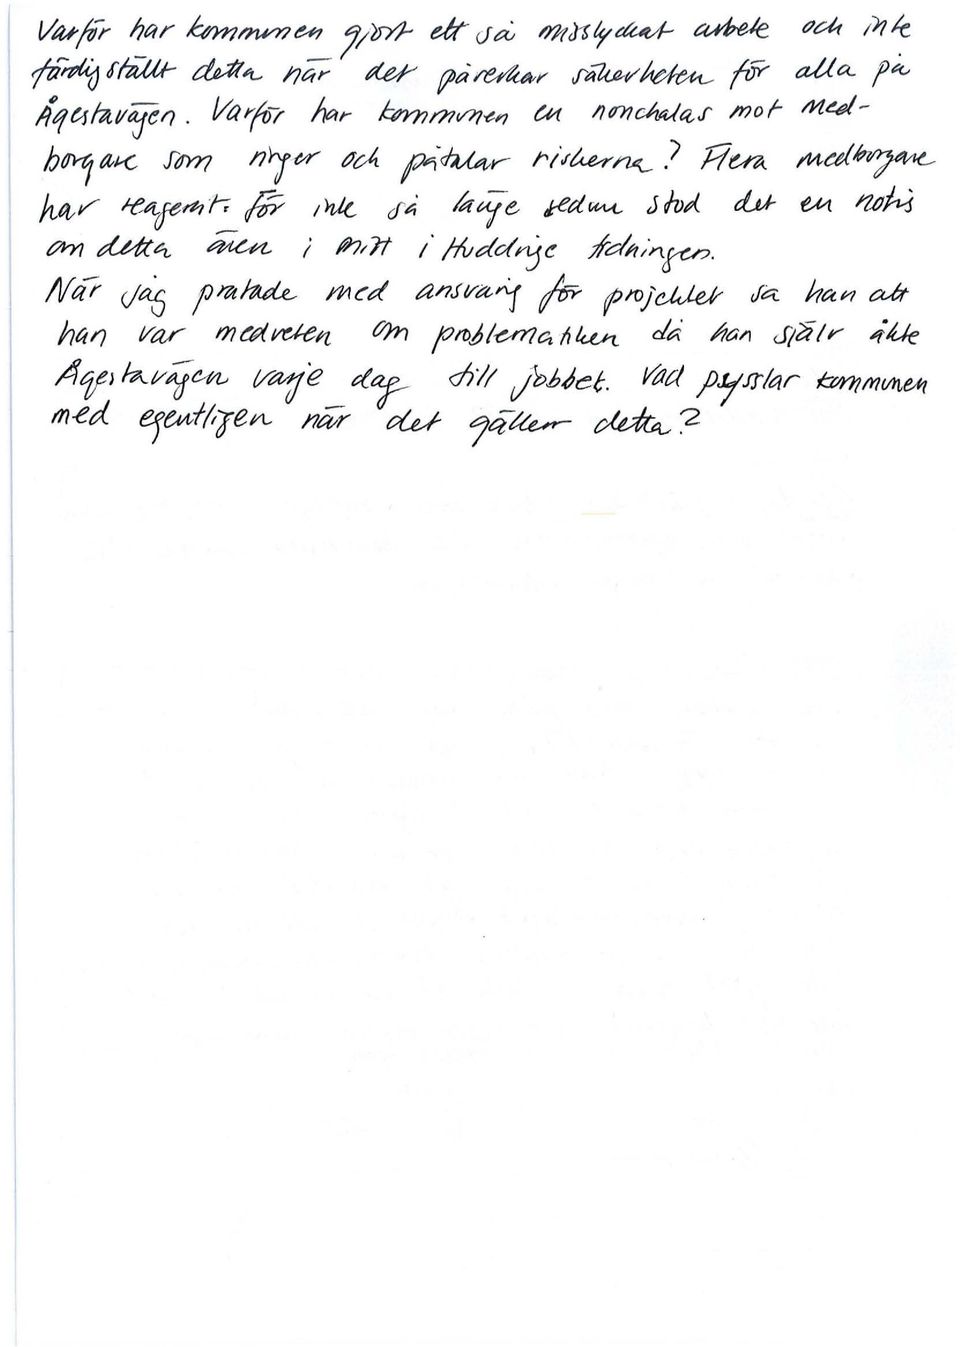 Varför har kommunen gjort ett så misslyckat arbete och inte
färdigställt detta när det påverkar säkerheten för alla på
Ågestavägen. Varför har kommunen en nonchalas mot med-
borgare som ringer och påtalar riskerna? Flera medborgare
har reagerat. För inte så länge sedan stod det en notis
om detta även i Mitt i Huddinge tidningen.
När jag pratade med ansvarig för projektet sa han att
han var medveten om problematiken då han själv åkte
Ågestavägen varje dag till jobbet. Vad pysslar kommunen
med egentligen när det gäller detta?